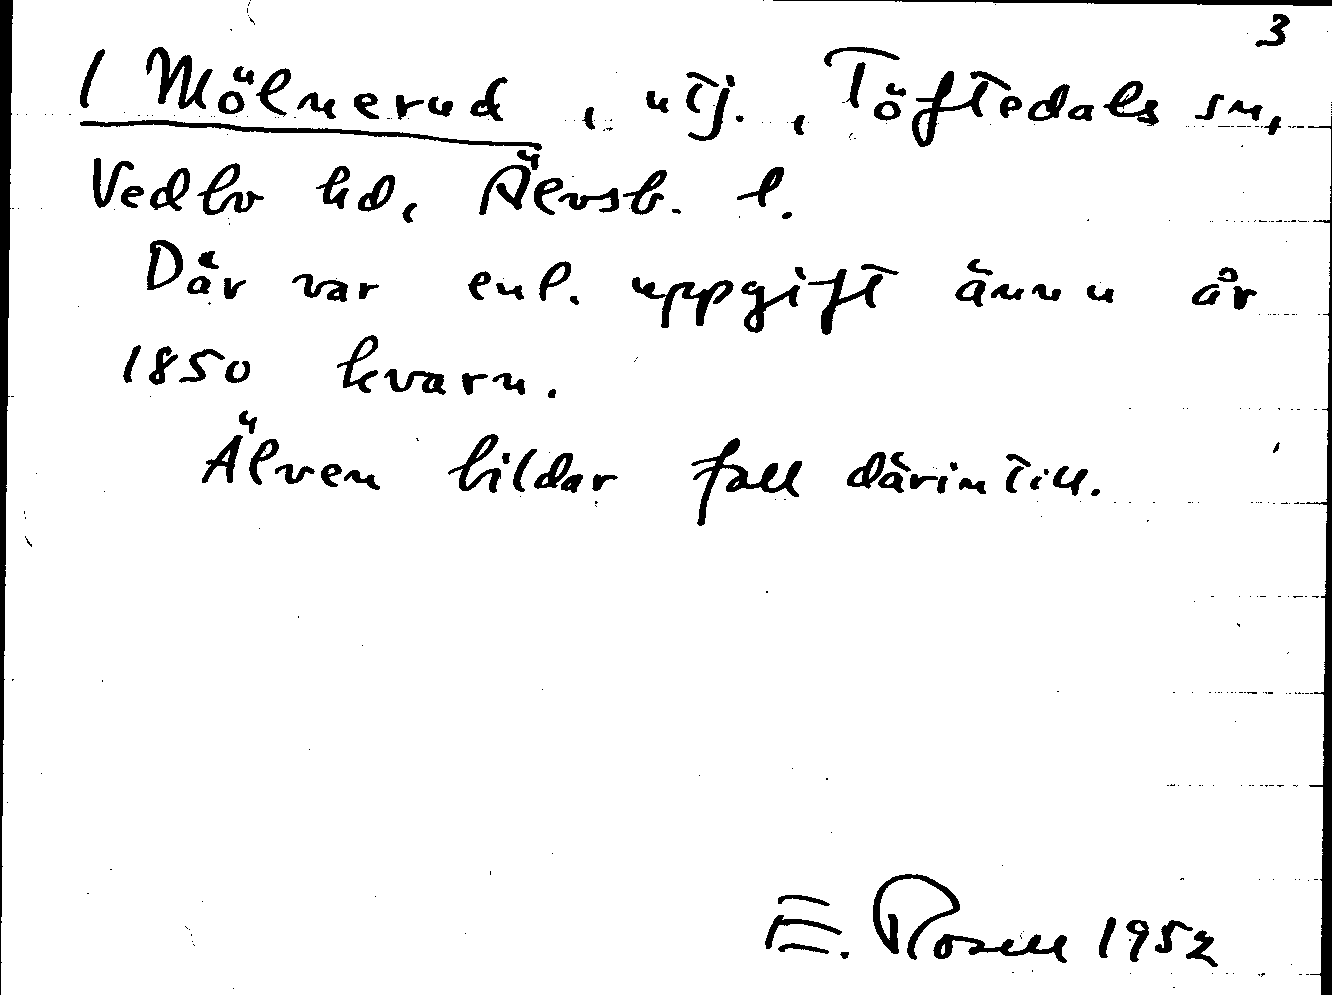 3
/ Mölnerud, utj., Töftedals sn,
Vedbo hd, Älvsb. l.
Där var enl. uppgift ännu år
1850 kvarn.
Älven bildar fall därintill.
E. Rosell 1952